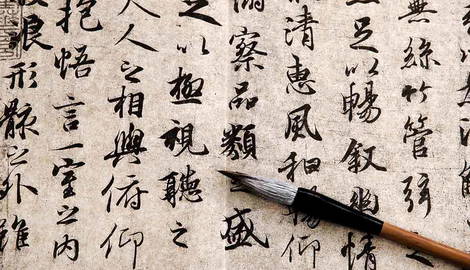 無絲竹管弦之
足以暢叙幽情
清惠風和暢仰
察品類之盛
足以極視聽之
人之相與俯仰
抱悟言一室之內
浪形骸之外雖